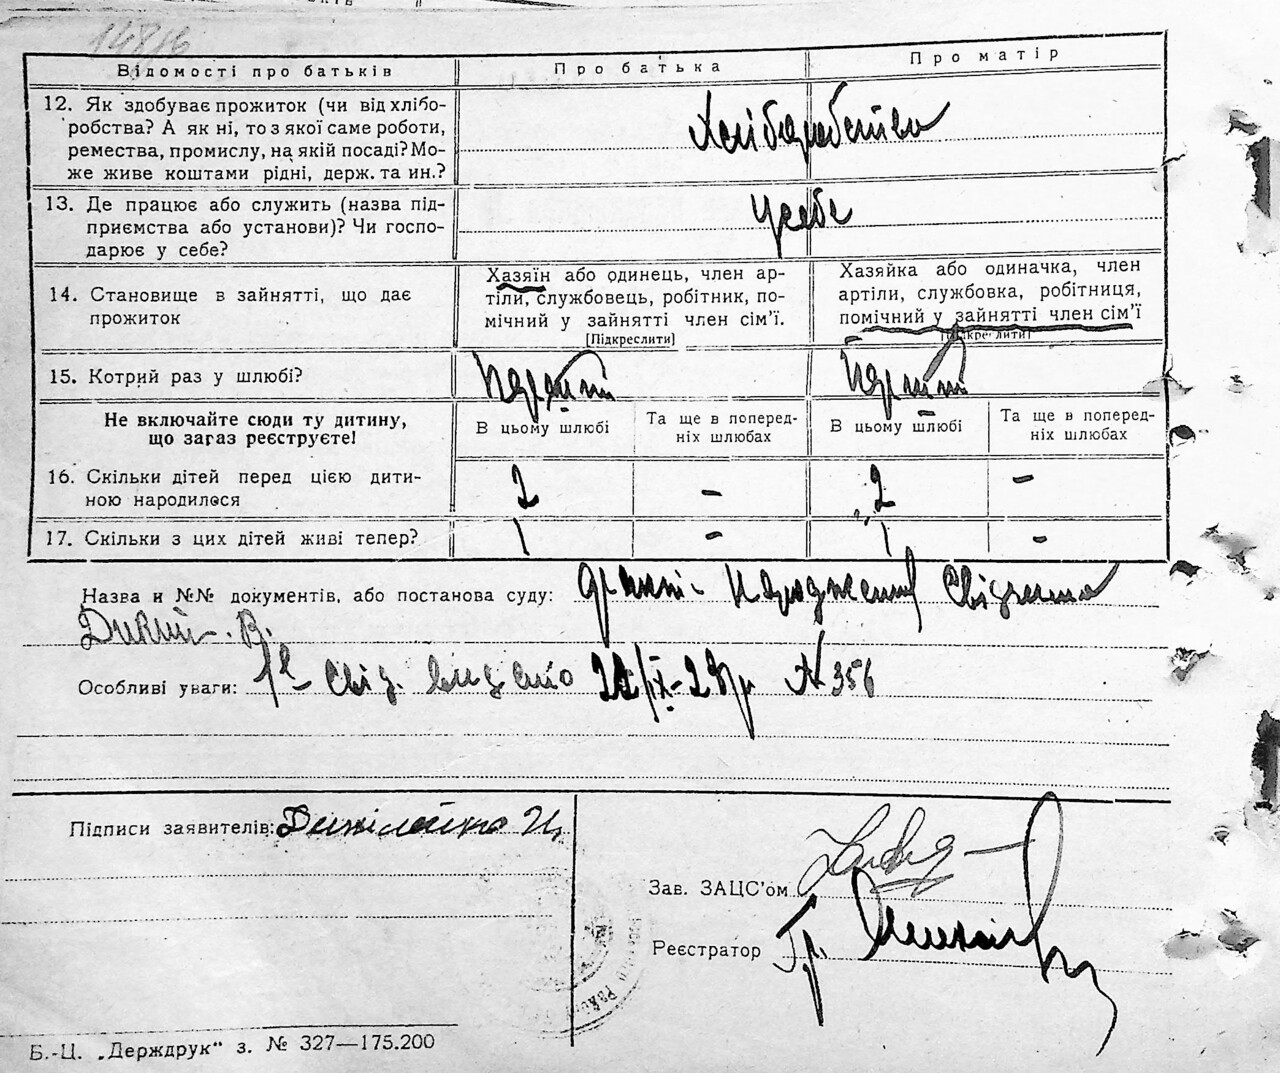 148/6
Відомості про батьків
Про батька
Про матір
12. Як здобуває прожиток (чи від хлібо-
робства? А як ні, то з якої саме роботи,
ремества, промислу, на якій посаді? Мо-
же живе коштами рідні, держ. та ин.?
Хліборобство
13. Де працює або служить (назва під-
приємства або установи)? Чи госпо-
дарює у себе?
У себе
14. Становище в зайнятті, що дає
прожиток
Хазяїн або одинець, член ар-
тіли, службовець, робітник, по-
мічний у зайнятті член сім'ї.
[Підкреслити]
Хазяйка або одиначка, член
артіли, службовка, робітниця,
помічний у зайнятті член сім'ї
[Підкреслити]
15. Котрий раз у шлюбі?
Перший
Перший
Не включайте сюди ту дитину,
що загаз реєструєте!
В цьому шлюбі
Та ще в поперед-
ніх шлюбах
В цьому шлюбі
Та ще в поперед-
ніх шлюбах
16. Скільки дітей перед цією дити-
ною народилося
2 - 2 -
17. Скільки з цих дітей живі тепер?
1 - 1 -
Назва и №№ документів, або постанова суду: народження Свідчить
Дикий В.
Особливі уваги: Свід. видано 22/IX-28р N 356
Підписи заявителів:
Зав. ЗАЦС'ом
Реєстратор
Б.-Ц. „Держдрук" з. № 327—175.200